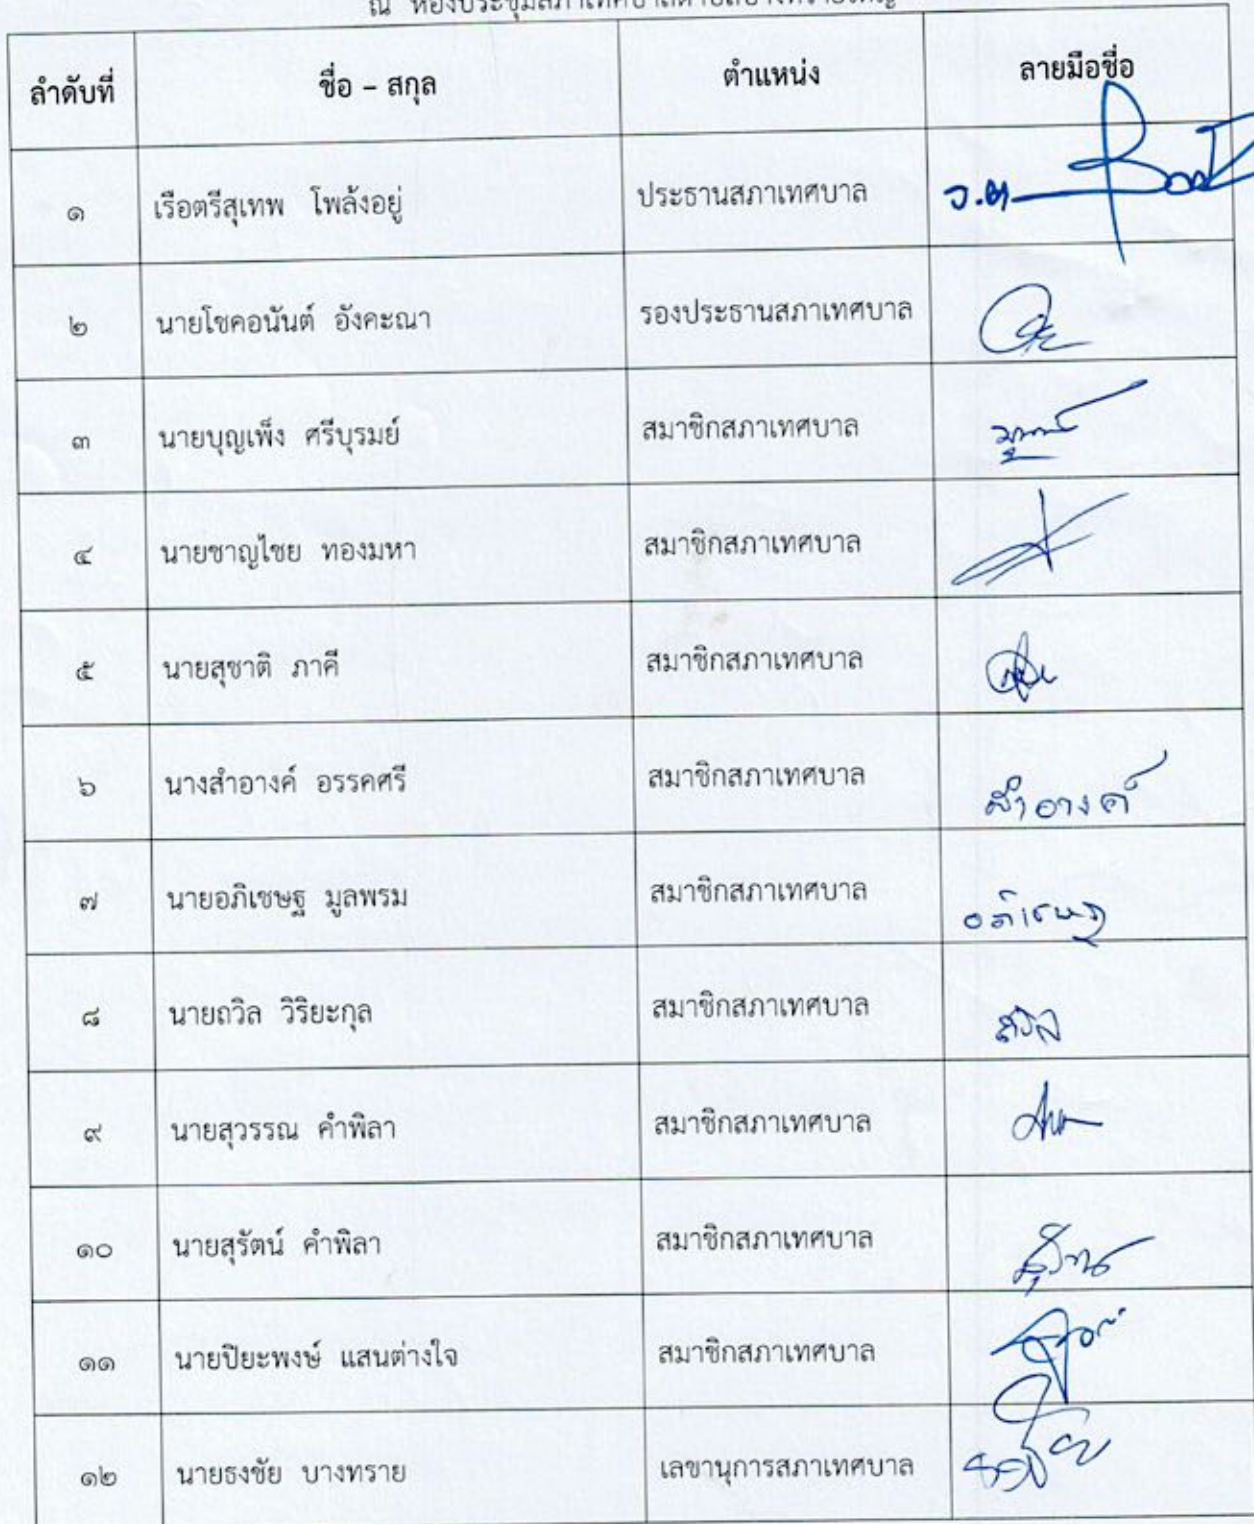 ณ ห้องประชุมสภาเทศบาลตำบลบางทรายใหญ่
ลำดับที่ ชื่อ – สกุล ตำแหน่ง ลายมือชื่อ
๑ เรือตรีสุเทพ โพล้งอยู่ ประธานสภาเทศบาล ว.ต.
๒ นายโชคอนันต์ อังคะณา รองประธานสภาเทศบาล
๓ นายบุญเพ็ง ศรีบุรมย์ สมาชิกสภาเทศบาล
๔ นายชาญไชย ทองมหา สมาชิกสภาเทศบาล
๕ นายสุชาติ ภาคี สมาชิกสภาเทศบาล
๖ นางสำอางค์ อรรคศรี สมาชิกสภาเทศบาล สำอางค์
๗ นายอภิเชษฐ มูลพรม สมาชิกสภาเทศบาล อภิเชษฐ
๘ นายถวิล วิริยะกุล สมาชิกสภาเทศบาล ถวิล
๙ นายสุวรรณ คำพิลา สมาชิกสภาเทศบาล
๑๐ นายสุรัตน์ คำพิลา สมาชิกสภาเทศบาล
๑๑ นายปิยะพงษ์ แสนต่างใจ สมาชิกสภาเทศบาล
๑๒ นายธงชัย บางทราย เลขานุการสภาเทศบาล